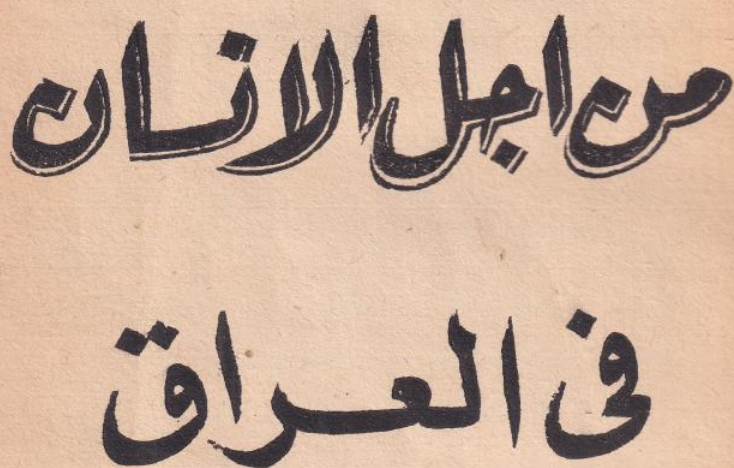 من اجل الانسان
فى العراق